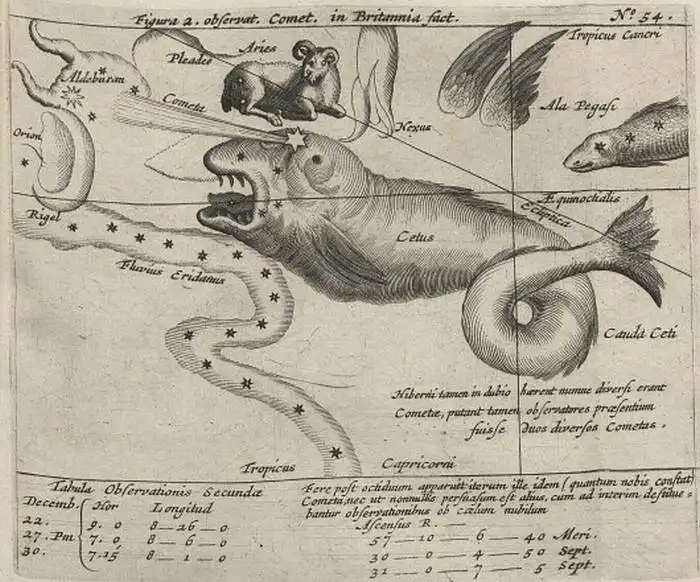 Figura 2. observat. Comet. in Britannia fact.
No. 54.
Tropicus Cancri
Aries
Pleades
Aldebaran
Cometa
Nexus
Ala Pegasi
Orion
Æquinoctialis
Ecliptica
Rigel
Cetus
Fluvius Eridanus
Cauda Ceti
Hiberni tamen in dubio hærent numne diversi erant
Cometæ, putant tamen observatores præsentium
fuisse duos diversos Cometas.
Tropicus Capricorni
Tabula Observationis Secundæ
Decemb. Hor Longitud
22. 9. 0 8 — 26 — 0
27. Pm 7. 0 8 — 6 — 0
30. 7. 15 8 — 1 — 0
Fere post octiduum apparuit iterum ille idem (quantum nobis constat)
Cometa, nec ut nonnullis persuasum est alius, cum ad interim destitue-
bantur observationibus ob cælum nubilum
Ascensus R.
57 — 10 — 6 — 40 Meri.
30 — 0 — 4 — 50 Sept.
31 — 0 — 7 — 5 Sept.